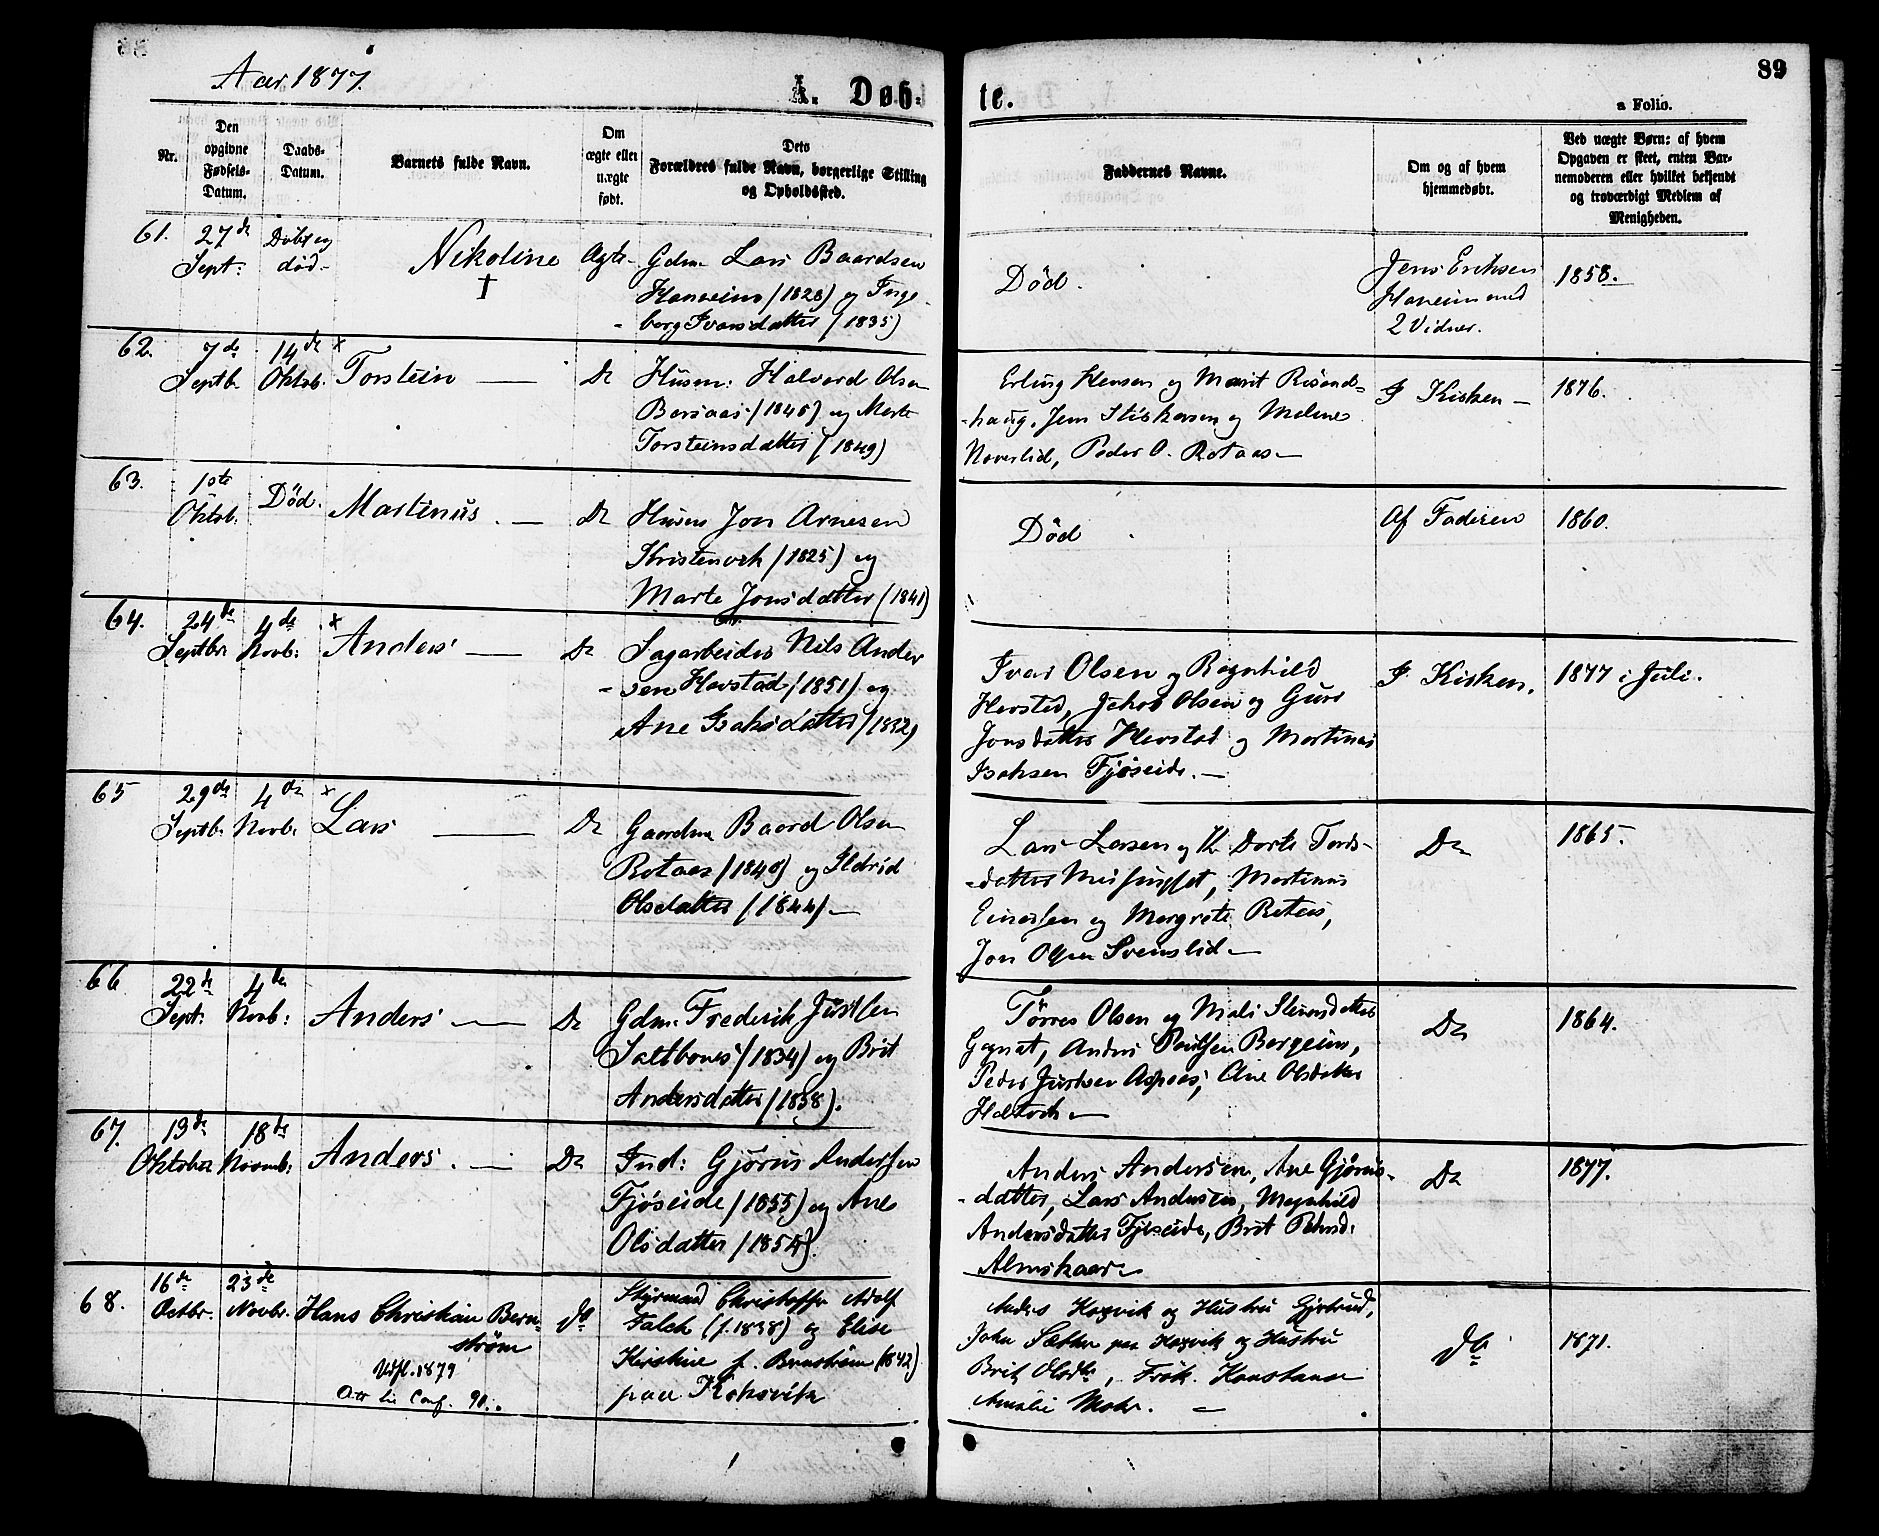 Aar 1877.
A. Døb-
te.
89
a Folio.
Nr.
Den opgivne Fødsels-Datum.
Daabs-Datum.
Barnets fulde Navn.
Om ægte eller uægte født.
Dets Forældres fulde Navn, borgerlige Stilling og Opholdssted.
Faddernes Navne.
Om og af hvem hjemmedøbt.
Ved uægte Børn: af hvem Opgaven er skeet, enten Barnemoderen eller hvilket bekjendt og troværdigt Medlem af Menigheden.
61.
27de
Sept:
Døbt og
død
Nikoline
†
Ægte
Gdm. Lars Baardsen
(1828) og Inge-
borg Ivarsdatter (1835)
Død.
Jens Eriksen
med
2 Vidner.
1858.
62.
7de
Septb.
14de
Oktob.
x
Torstein
Do
Husm: Halvard Olsen
(1845) og Marte
Torsteinsdatter (1849)
Erling Hansen og Marit
haug, Jens og
Peder O. Rotaas
I Kirken
1876.
63.
1ste
Oktob.
Død.
Martinus
Do
Husm Jon Arnesen
(1825) og
Marte Jonsdatter (1841)
Død
Af Faderen
1860.
64.
24de
Septbr
4de
Novb:
x
Anders
Do
Sagarbeider Nils Ander
sen Havstad (1851) og
Ane Isaksdatter (1852)
Ivar Olsen og Ragnhild
Havstad, Jakob Olsen og Guro
Jonsdatter Havstad og Martinus
Isaksen Fjøseide.
I Kirken.
1877 i Juli.
65
29de
Septb.
4de
Novb.
x
Lars
Do
Gaardm Baard Olsen
Rotaas (1840) og Ildrid
Olsdatter (1844)
Lars Larsen og Dorte Tords-
datter Meisingset, Martinus
Einarsen og Margrete Rotaas,
Jon Olsen Svenslid
Do
1865.
66
22de
Sept:
4de
Novb:
Anders
Do
Gdm. Frederik Justsen
Saltbones (1834) og Brit
Andersdatter (1838).
Tørres Olsen og Mali
Gagnat, Anders Poulsen Bergeim,
Peder Justsen Aspaas, Ane Olsdatter
Do
1864.
67.
19de
Oktober
18de
Novemb:
Anders.
Do
Ind: Gjørus Andersen
Fjøseide (1855) og Ane
Olsdatter (1854).
Anders Andersen, Ane Gjørus-
datter, Lars Andersen, Magnhild
Andersdatter Fjøseide, Brit
Almskaar
Do
1877.
68.
16de
Octbr.
23de
Novbr.
Hans Christian Bern-
strøm
1879
Att til Conf. 90.
do
Styrmand Christoffer Adolf
Falck (f. 1838) og Elise
Kirstine f. Bernstrøm (1842)
paa
Anders Hogsvik og Hustru Gjertrud,
John Sæther paa Hogsvik og Hustru
Brit Olsdtr, Frøk. Konstanse
Amalie Mohr.
do
1871.